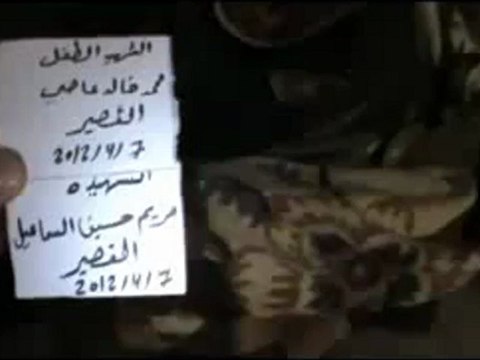 الشهيد الطفل
محمد خالد عاصي
القصير
2012/4/7
الشهيده
مريم حسين السماعيل
القصير
2012/4/7